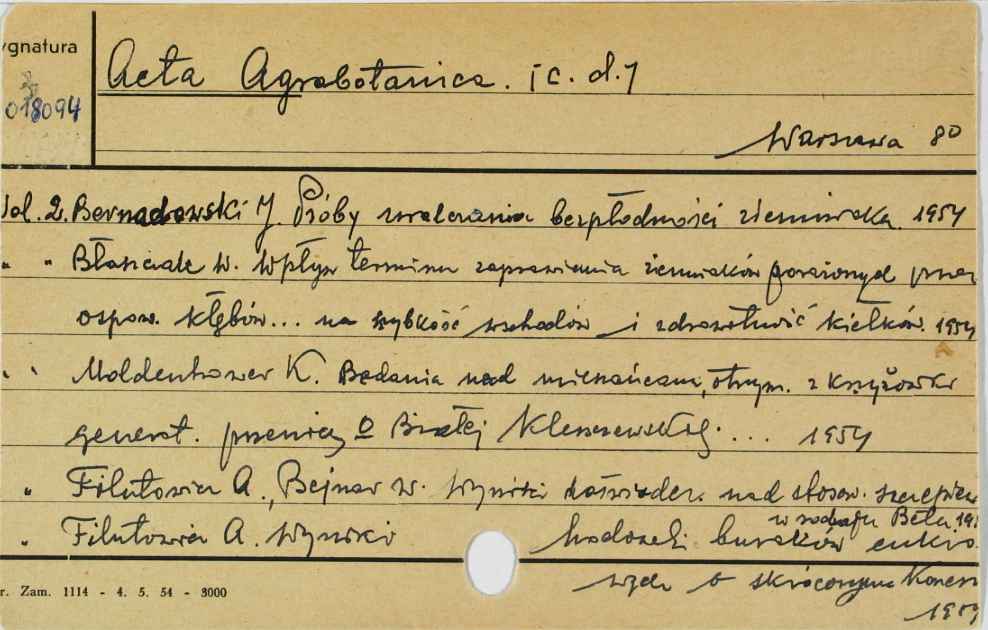 ygnatura
018094
Acta Agrobotanica. [c. d.]
Warszawa 80
Vol. 2. Bernadowski J. Próby zwalczania bezpłodności ziemniaka. 1954
" " Błaszczak W. Wpływ terminu zaprawiania ziemniaków porażonych przez
ospow. kłębów... na szybkość wschodów i zdrowotność kiełków. 1954
" " Moldenhawer K. Badania nad mieszańcami, otrzym. z krzyżówki
generat. pszenicy Białej Kleszczewskiej... 1954
" Filutowicz A., Bejnar W. Wyniki doświadcz. nad stosow. szczepień
w rodzaju Beta 19
" Filutowicz A. Wyniki hodowli buraków cukro
o skróconym
1954
r. Zam. 1114 - 4. 5. 54 - 3000